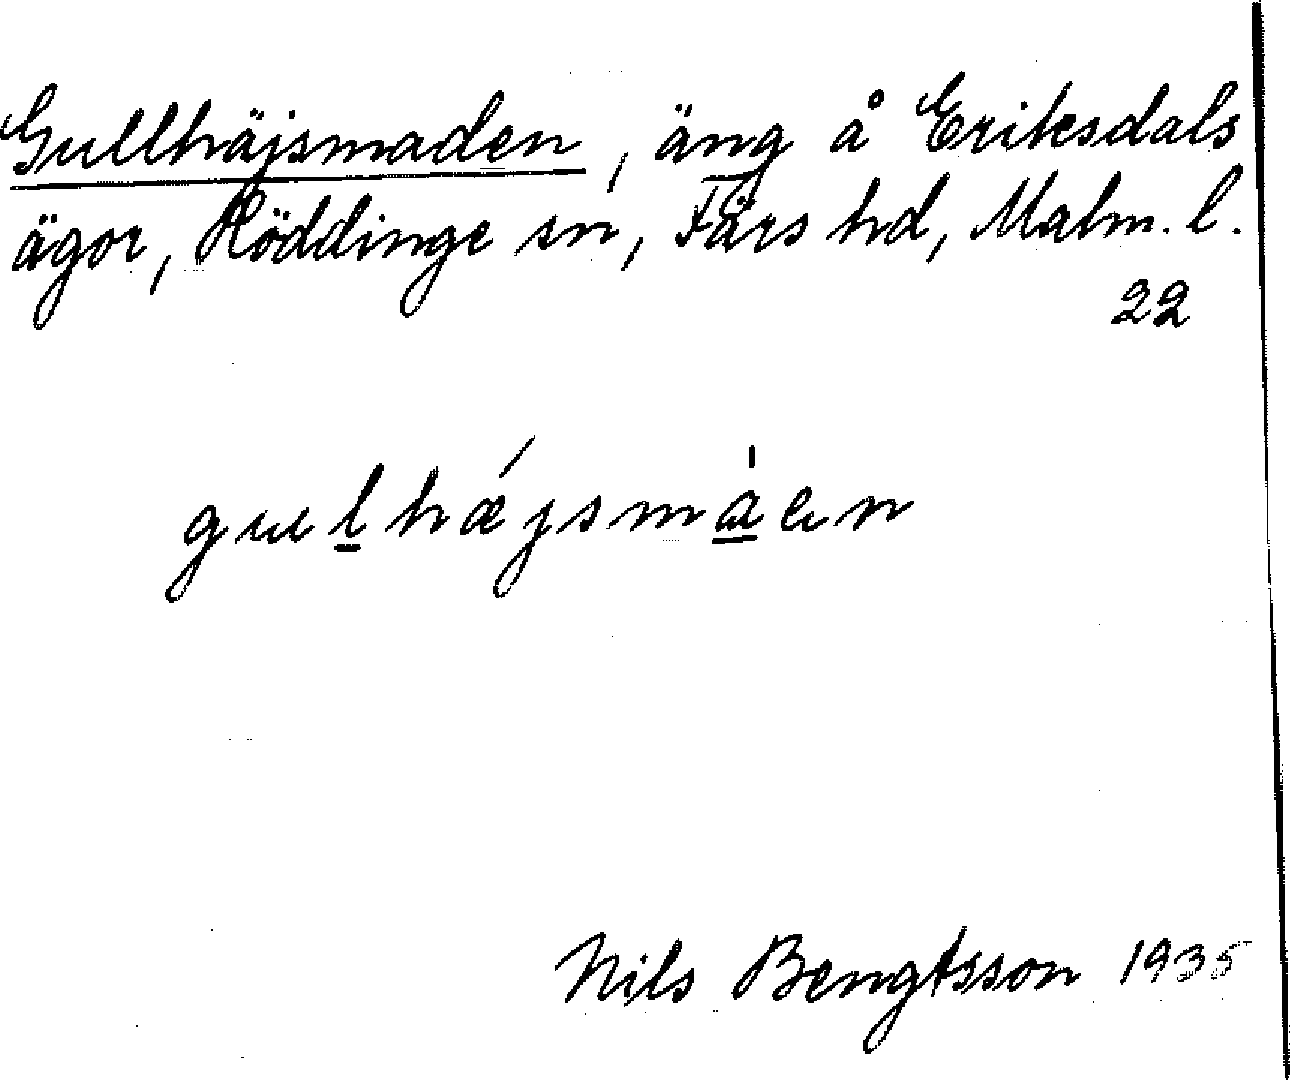 Gullhäjsmaden, äng å Eriksdals
ägor, Röddinge sn, Färs hd, Malm. l.
22
gulhǽjsmàen
Nils Bengtsson 1935